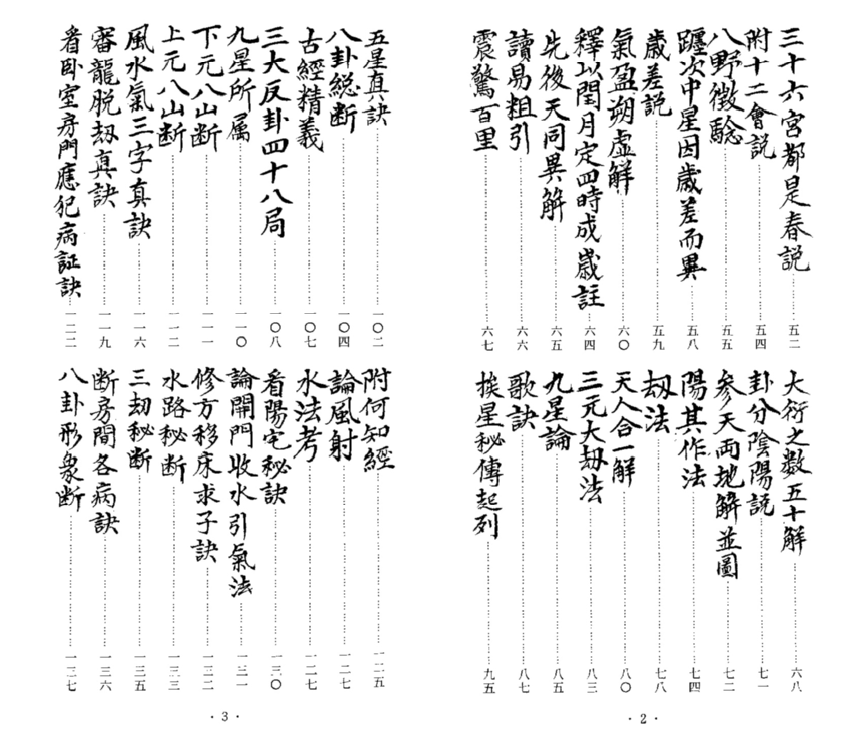 三十六宮都是春説……五二
附十二會説……五四
八野徴驗……五五
躔次中星因歲差而異……五八
歲差説……五九
氣盈朔虛解……六〇
釋以閏月定四時成歲註……六四
先後天同異解……六五
讀易粗引……六六
震驚百里……六七
大衍之數五十解……六八
卦分陰陽説……七一
參天両地解並圖……七二
陽其作法……七四
劫法……七八
天人合一解……八〇
三元大劫法……八三
九星論……八五
歌訣……八七
挨星秘傳起列……九五
· 2 ·
五星真訣……一〇二
八卦総断……一〇四
古經精義……一〇七
三大反卦四十八局……一〇八
九星所属……一一〇
下元八山断……一一一
上元八山断……一一二
風水氣三字真訣……一一六
審龍脱劫真訣……一一九
看卧室房門應犯病証訣……一二二
附何知經……一二五
論風射……一二七
水法考……一二七
看陽宅秘訣……一三〇
論開門收水引氣法……一三一
修方移床求子訣……一三二
水路秘断……一三三
三劫秘断……一三五
断房間各病訣……一三六
八卦形象断……一三七
· 3 ·